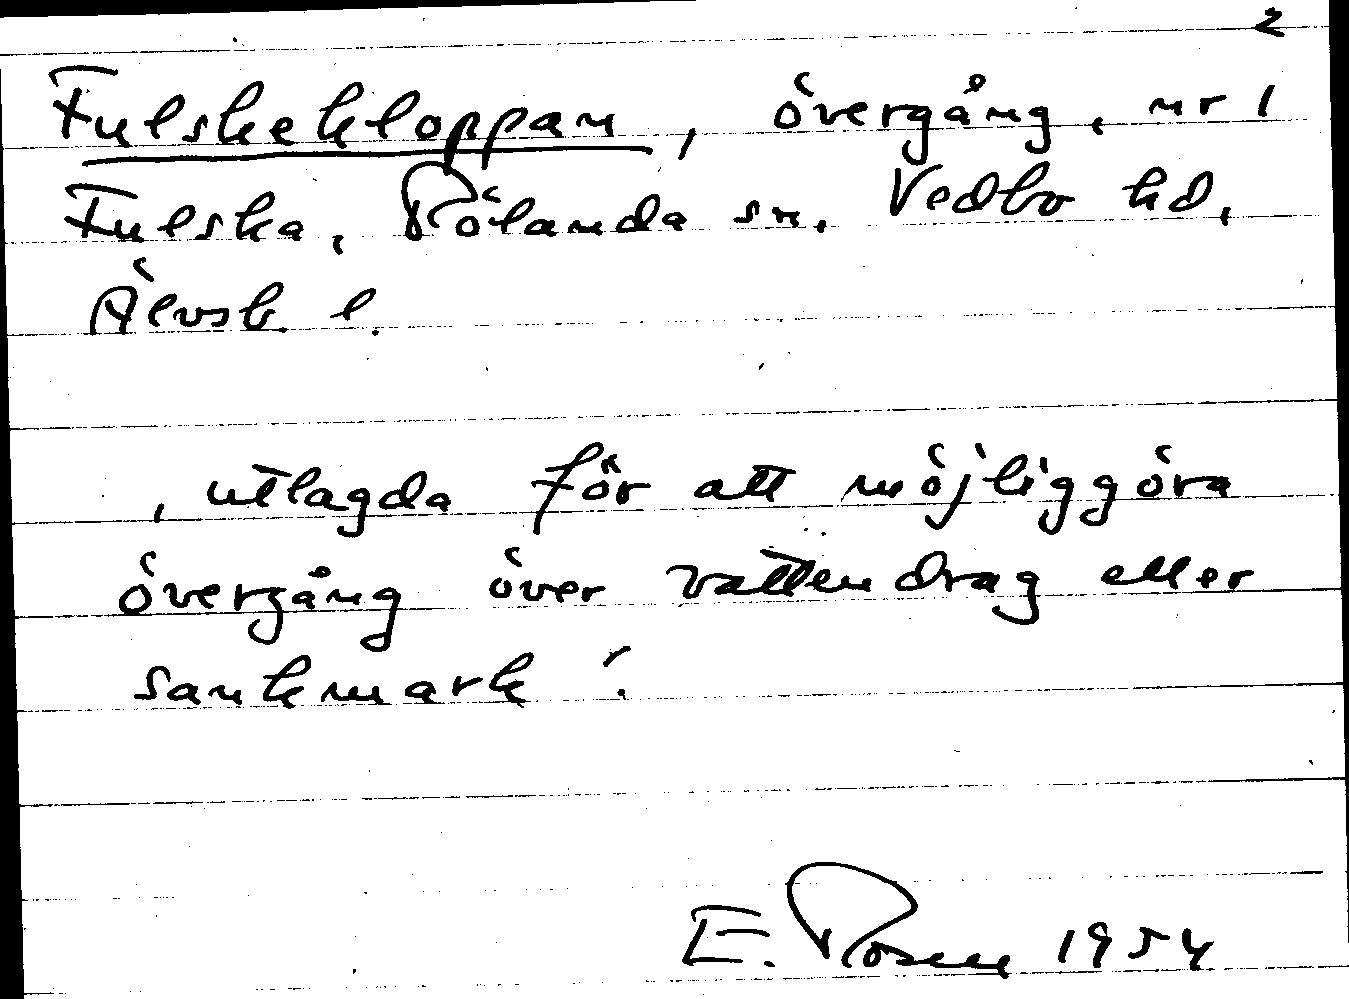 2
Fulskekloppan, övergång, nr 1
Fulska, Rölanda sn. Vedbo hd,
Älvsb. l.
, utlagda för att möjliggöra
övergång över vattendrag eller
sankmark'.
E. Rosen 1954